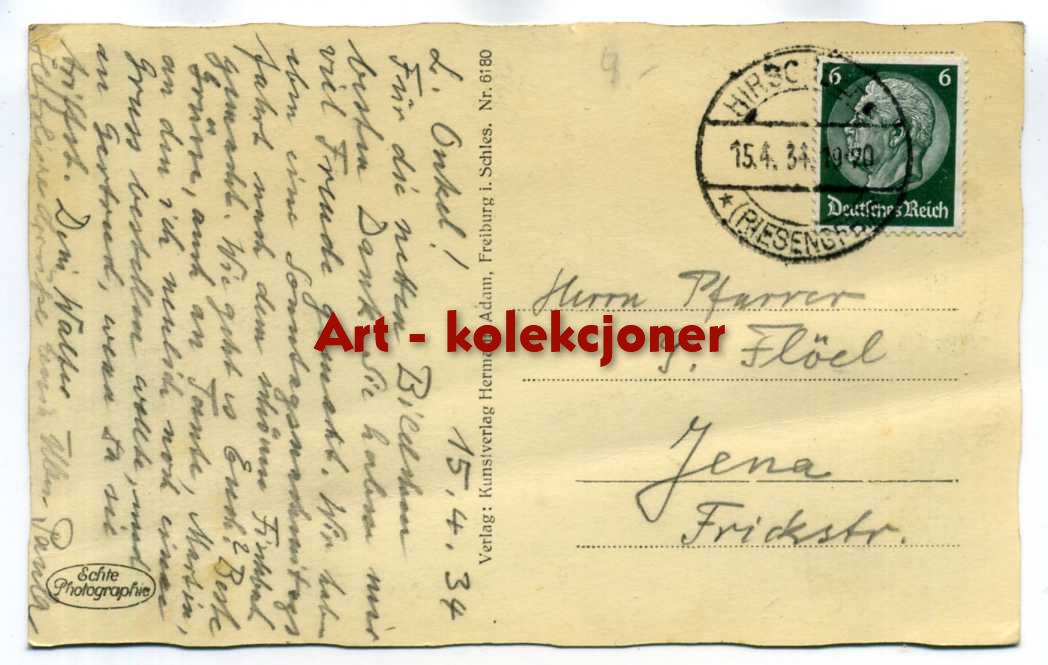 15.4.34
L. Onkel!
Für die netten Bildchen
besten Dank. Sie haben mir
viel Freude gemacht. Wir haben
eben eine Sonntagnachmittags
fahrt nach dem schönen
gemacht. Wie geht es Euch? Beste
Grüsse, auch an Tante, Martin,
an den ich neulich noch einen
Gruss bestellen wollte, und
an Gertrud, wenn du sie
triffst. Dein Walter
Herzliche Grüße
Echte
Photographie
Verlag: Kunstverlag Hermann Adam, Freiburg i. Schles. Nr. 6180
HIRSCHBERG
15.4.34.19-20
(RIESENGEB)
6 6
Deutsches Reich
Herrn Pfarrer
Flöel
Jena
Frickstr.
Art - kolekcjoner